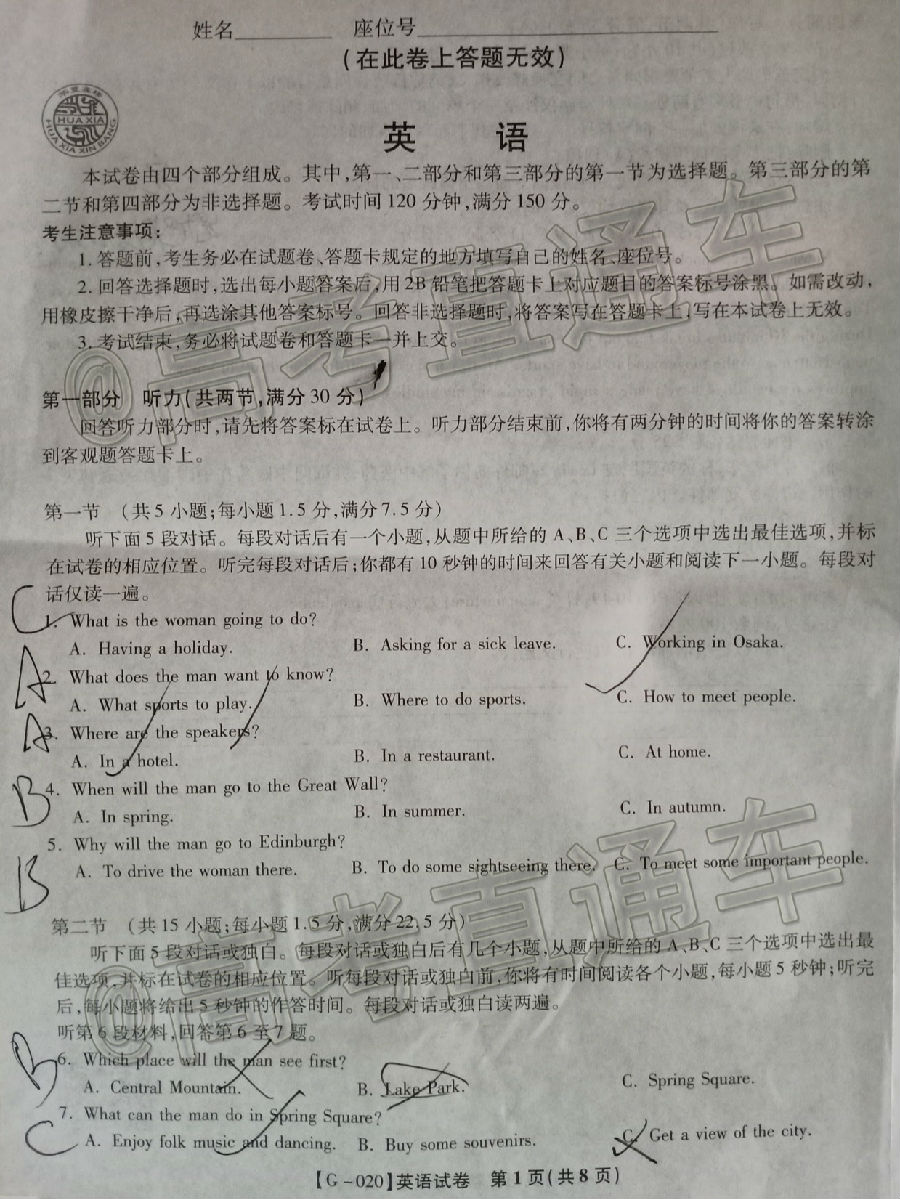 姓名________ 座位号________________
(在此卷上答题无效)
华夏鑫榜
HUA XIA
HUA XIA XIN BANG
英 语
本试卷由四个部分组成。其中,第一、二部分和第三部分的第一节为选择题。第三部分的第
二节和第四部分为非选择题。考试时间120分钟,满分150分。
考生注意事项:
1.答题前,考生务必在试题卷、答题卡规定的地方填写自己的姓名、座位号。
2.回答选择题时,选出每小题答案后,用2B铅笔把答题卡上对应题目的答案标号涂黑。如需改动,
用橡皮擦干净后,再选涂其他答案标号。回答非选择题时,将答案写在答题卡上,写在本试卷上无效。
3.考试结束,务必将试题卷和答题卡一并上交。
@高考直通车
第一部分 听力(共两节,满分30分)
回答听力部分时,请先将答案标在试卷上。听力部分结束前,你将有两分钟的时间将你的答案转涂
到客观题答题卡上。
第一节 (共5小题;每小题1.5分,满分7.5分)
听下面5段对话。每段对话后有一个小题,从题中所给的A、B、C三个选项中选出最佳选项,并标
在试卷的相应位置。听完每段对话后,你都有10秒钟的时间来回答有关小题和阅读下一小题。每段对
话仅读一遍。
C 1. What is the woman going to do?
A. Having a holiday. B. Asking for a sick leave. C. Working in Osaka.
A 2. What does the man want to know?
A. What sports to play. B. Where to do sports. C. How to meet people.
A 3. Where are the speakers?
A. In a hotel. B. In a restaurant. C. At home.
B 4. When will the man go to the Great Wall?
A. In spring. B. In summer. C. In autumn.
5. Why will the man go to Edinburgh?
B A. To drive the woman there. B. To do some sightseeing there. C. To meet some important people.
@高考直通车
第二节 (共15小题;每小题1.5分,满分22.5分)
听下面5段对话或独白。每段对话或独白后有几个小题,从题中所给的A、B、C三个选项中选出最
佳选项,并标在试卷的相应位置。听每段对话或独白前,你将有时间阅读各个小题,每小题5秒钟;听完
后,每小题将给出5秒钟的作答时间。每段对话或独白读两遍。
听第6段材料,回答第6至7题。
B 6. Which place will the man see first?
A. Central Mountain. B. Lake Park. C. Spring Square.
7. What can the man do in Spring Square?
C A. Enjoy folk music and dancing. B. Buy some souvenirs. C. Get a view of the city.
【G-020】英语试卷 第1页(共8页)